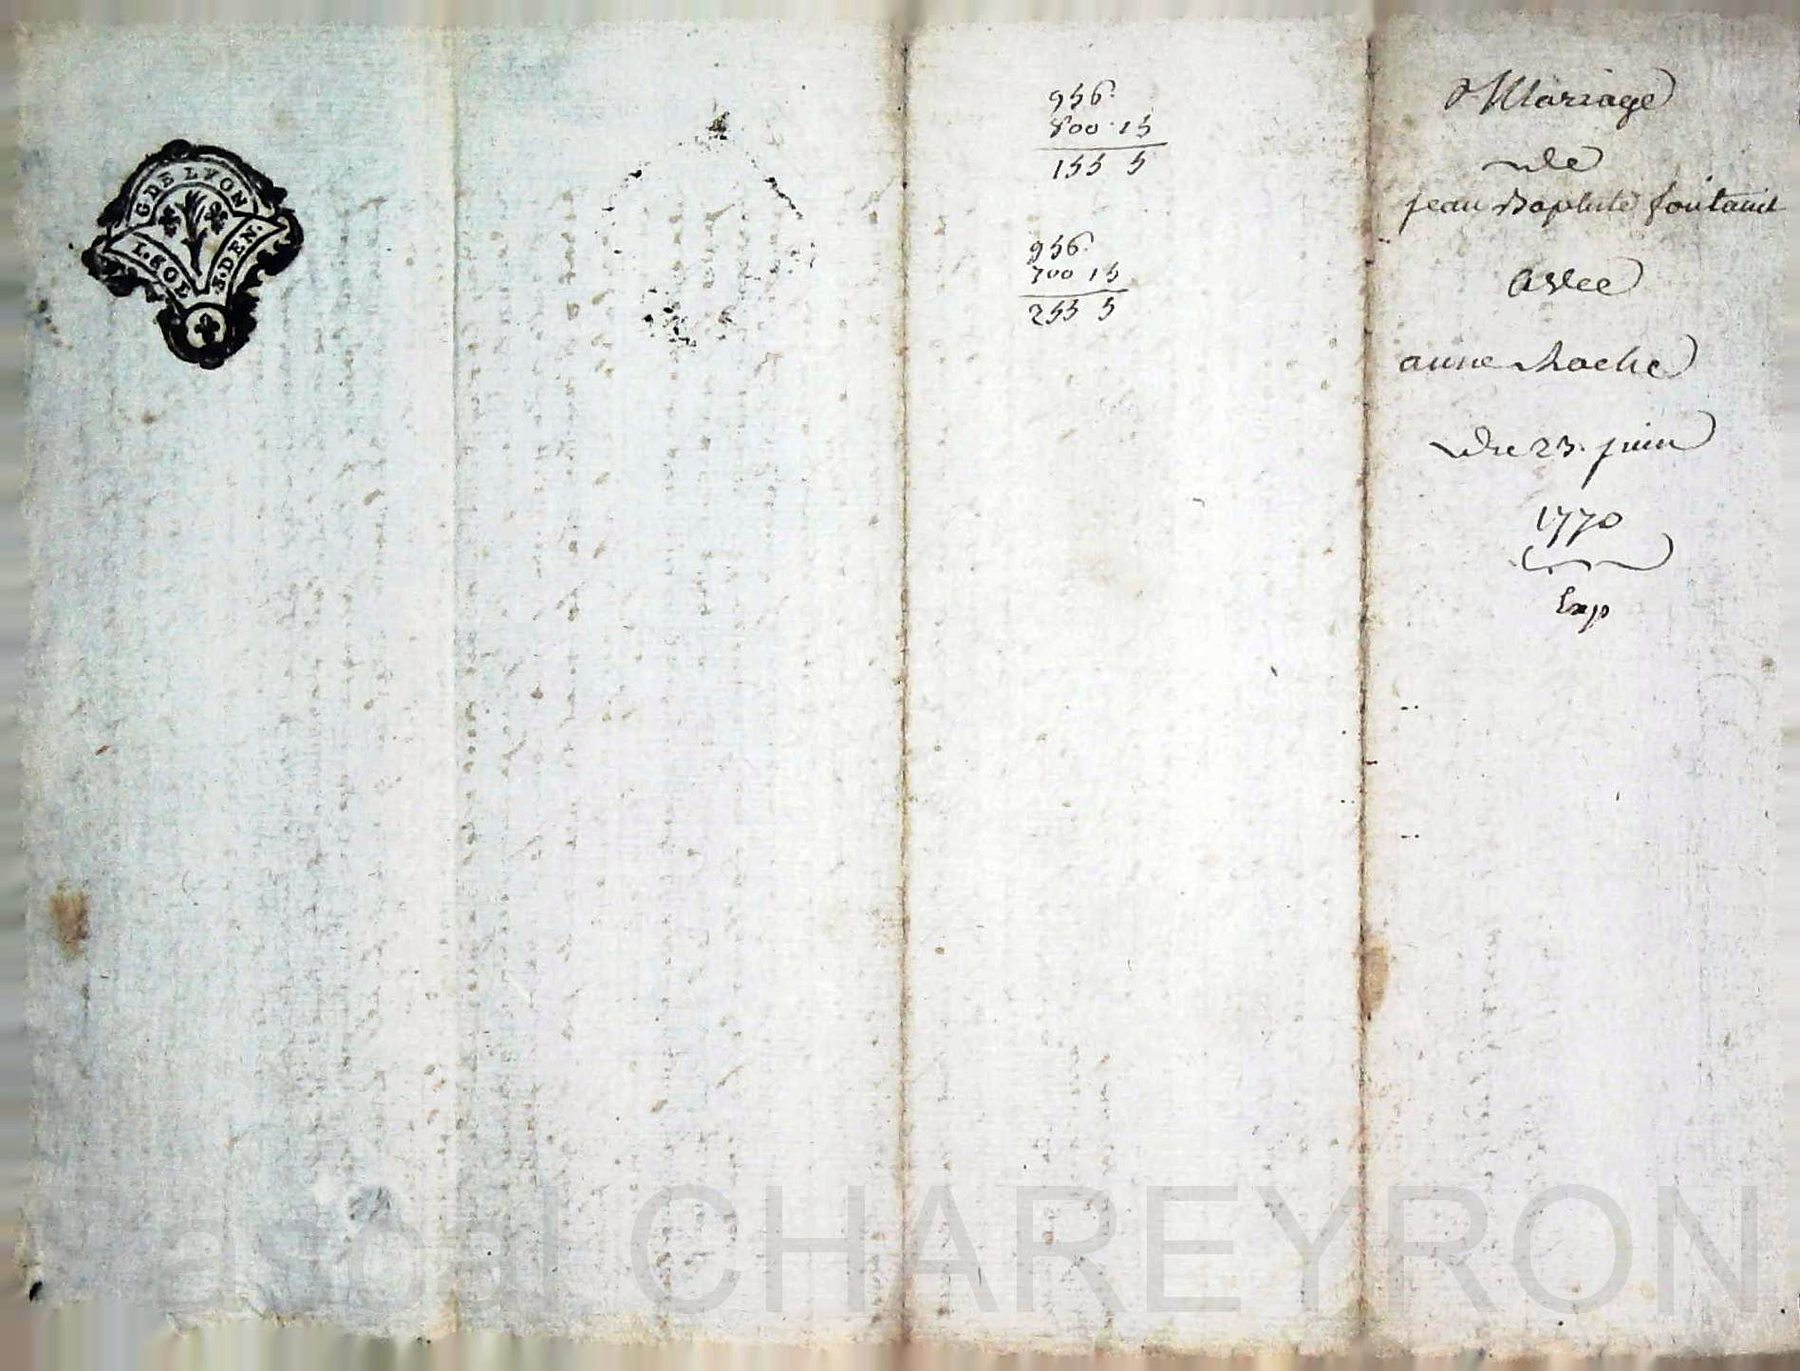 G. DE LYON
1. SOL 3. DEN.
956.
800 . 15
155 5
956.
700 15
255 5
Mariage
de
jean Baptiste fontanet
avec
anne Roche
du 23. juin
1770
Exp
Pascal CHAREYRON